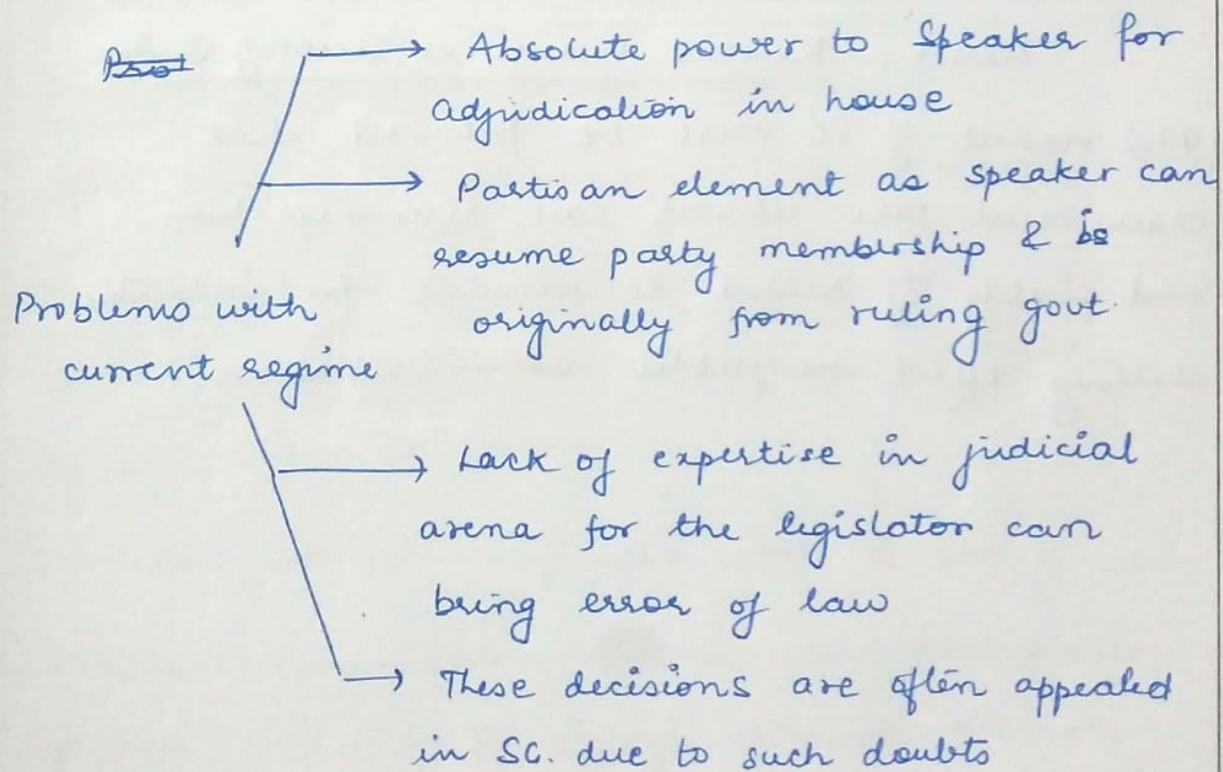 Absolute power to Speaker for
adjudication in house
Partisan element as speaker can
resume party membership & is
originally from ruling govt.
Problems with
current regime
Lack of expertise in judicial
arena for the legislator can
bring error of law
These decisions are often appealed
in SC. due to such doubts